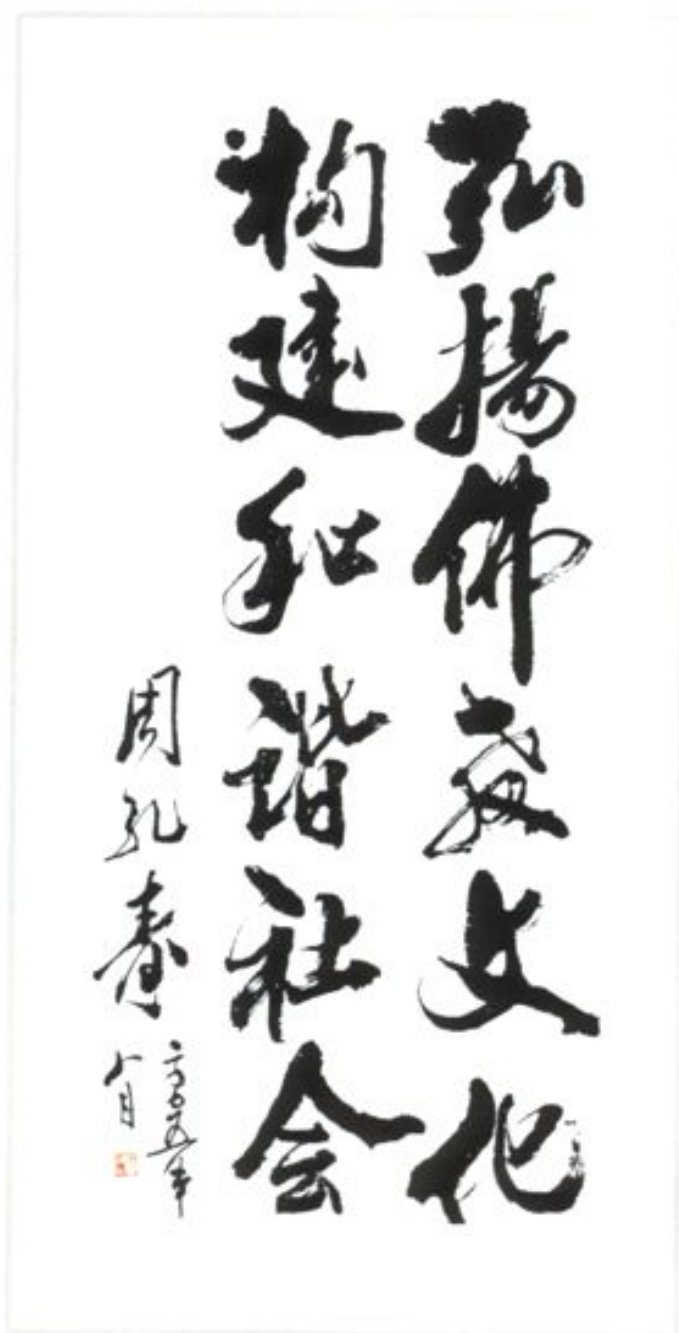 弘揚佛教文化
构建和谐社会
周孔壽
二〇〇五年
八月